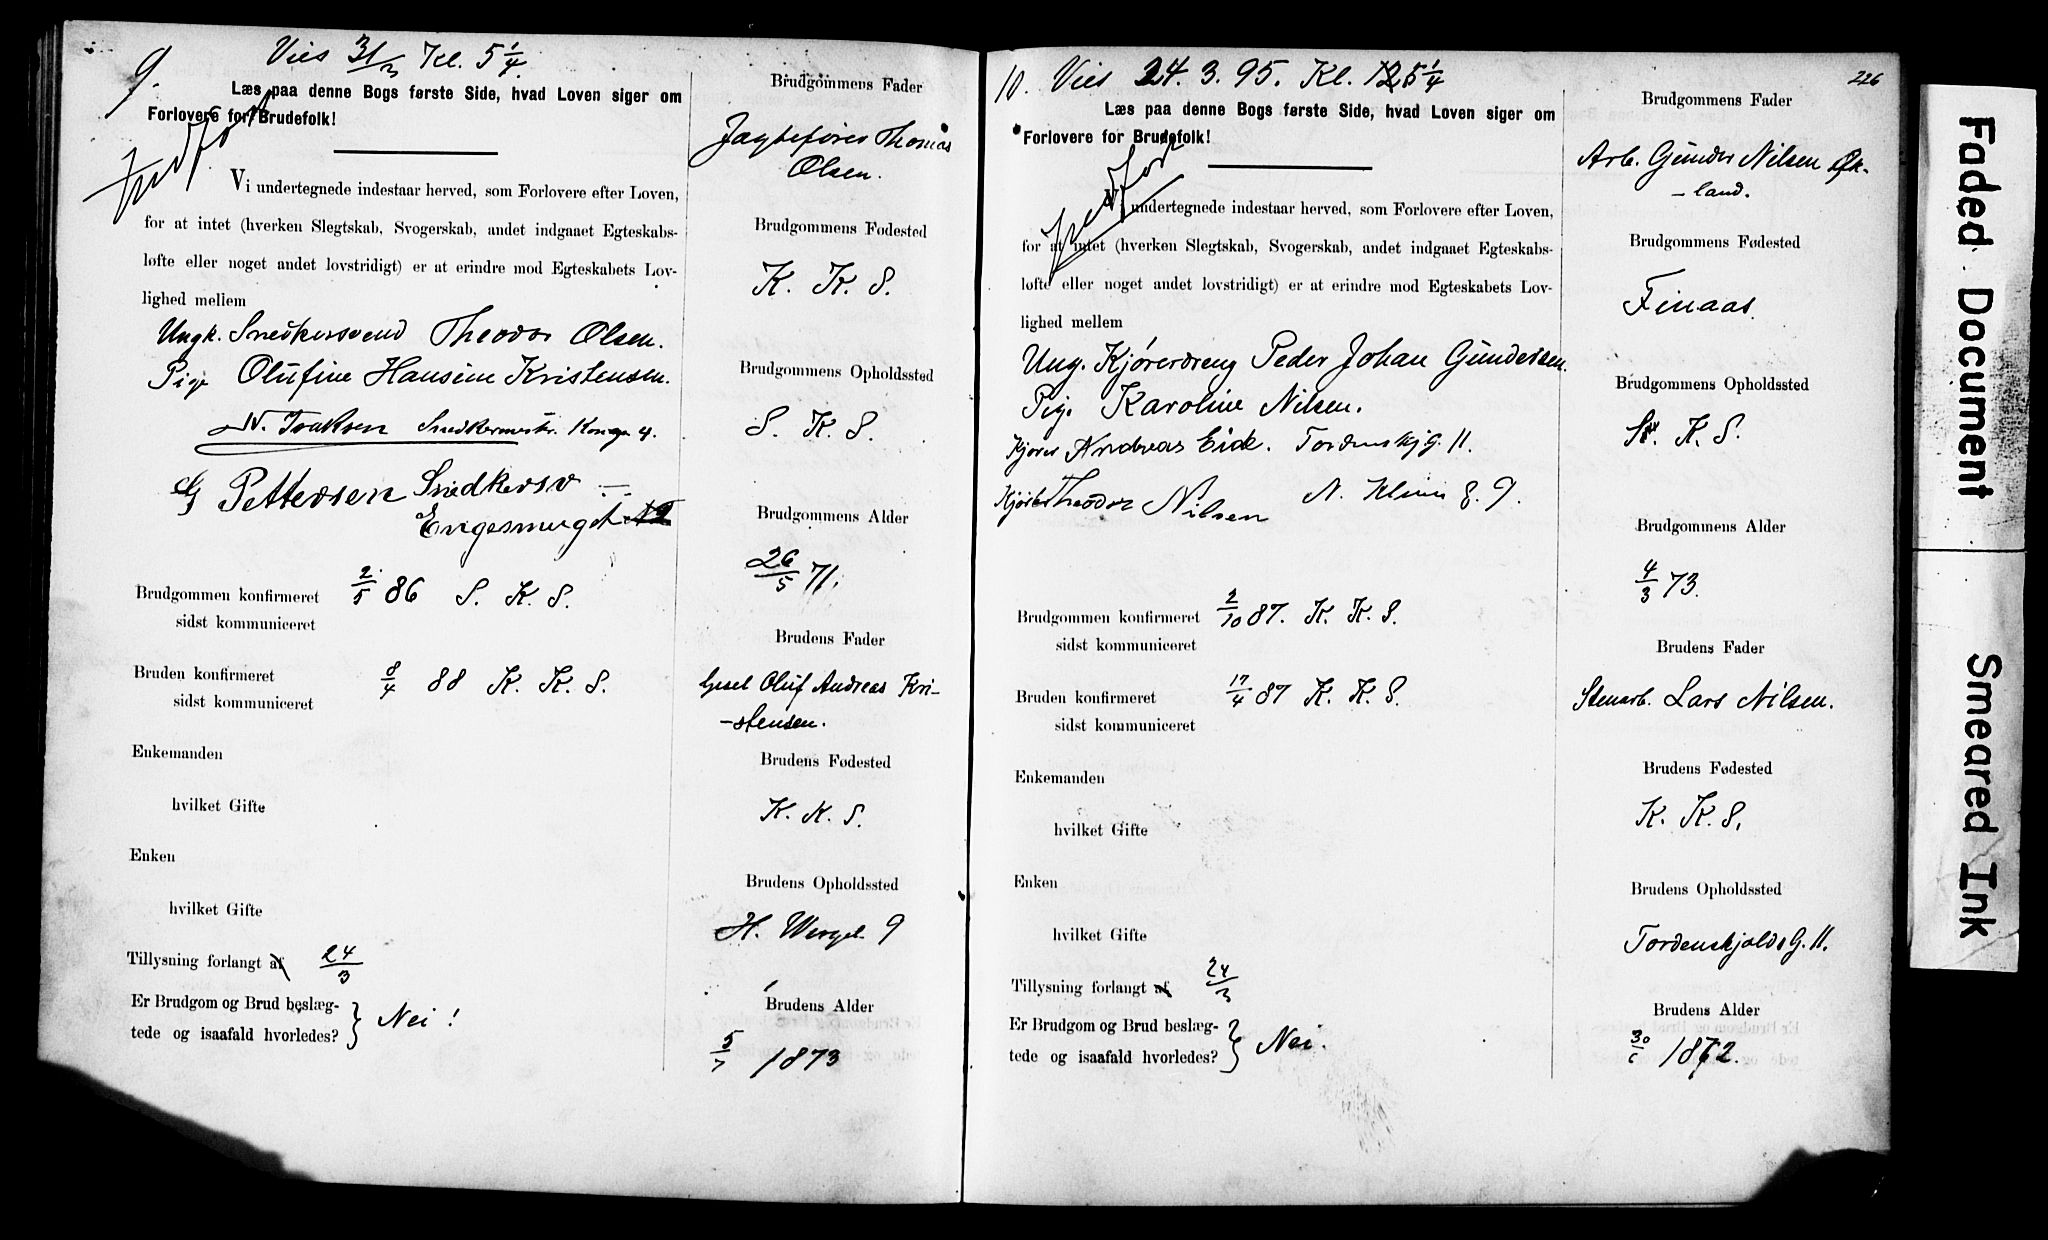 9. Vies 31/3 Kl. 5 1/4.
Læs paa denne Bogs første Side, hvad Loven siger om
Forlovere for Brudefolk!
Indført
Vi undertegnede indestaar herved, som Forlovere efter Loven,
for at intet (hverken Slegtskab, Svogerskab, andet indgaaet Egteskabs-
løfte eller noget andet lovstridigt) er at erindre mod Egteskabets Lov-
lighed mellem
Ungk. Snedkersvend Theodor Olsen.
Pige Olufine Hansine Kristensen.
N. Isaksen Snedkermestr. Kongeg. 4.
Pettersen Snedkersv
Engesmuget
Brudgommen konfirmeret 2/5 86 S. K. S.
sidst kommuniceret
Bruden konfirmeret 8/4 88 K. K. S.
sidst kommuniceret
Enkemanden
hvilket Gifte
Enken
hvilket Gifte
Tillysning forlangt af 24/3
Er Brudgom og Brud beslæg-
tede og isaafald hvorledes? } Nei!
Brudgommens Fader
Jagtefører Thomas
Olsen.
Brudgommens Fødested
K. K. S.
Brudgommens Opholdssted
S. K. S.
Brudgommens Alder
26/5 71.
Brudens Fader
Oluf Andreas Kri-
-stensen.
Brudens Fødested
K. K. S.
Brudens Opholdssted
H. Wergel. 9
Brudens Alder
5/7 1873
226
10. Vies 24. 3. 95. Kl. 5 1/4
Læs paa denne Bogs første Side, hvad Loven siger om
Forlovere for Brudefolk!
Indført
Vi undertegnede indestaar herved, som Forlovere efter Loven,
for at intet (hverken Slegtskab, Svogerskab, andet indgaaet Egteskabs-
løfte eller noget andet lovstridigt) er at erindre mod Egteskabets Lov-
lighed mellem
Ung. Kjøredreng Peder Johan Gundersen.
Pige Karoline Nilsen.
Kjører Andreas Eide. Tordenskj G. 11.
Kjører Theodor Nilsen N. Klims g. 9.
Brudgommen konfirmeret 2/10 87. K. K. S.
sidst kommuniceret
Bruden konfirmeret 17/4 87 K. K. S.
sidst kommuniceret
Enkemanden
hvilket Gifte
Enken
hvilket Gifte
Tillysning forlangt af 24/3
Er Brudgom og Brud beslæg-
tede og isaafald hvorledes? } Nei.
Brudgommens Fader
Arb. Gunder Nilsen Øk-
-land.
Brudgommens Fødested
Finaas.
Brudgommens Opholdssted
K. S.
Brudgommens Alder
4/3 73.
Brudens Fader
Stenarb. Lars Nilsen.
Brudens Fødested
K. K. S.
Brudens Opholdssted
Tordenskjolds G. 11.
Brudens Alder
30/6 1872.
Faded Document
Smeared Ink